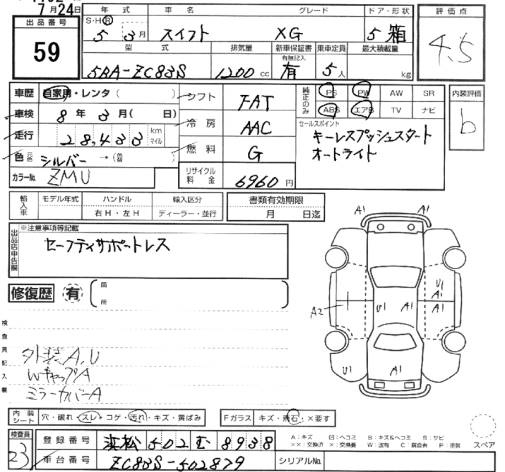 7月24日
出品番号
59
年式 車名 グレード ドア・形状
S・H・R 5年3月 スイフト XG 5 箱
型式 排気量 新車保証書 乗車定員 最大積載量
有無記入
5BA-ZC83S 1200cc 有 5人 kg
評価点
4.5
車歴 自家用・レンタ( )
車検 8年3月( 日)
走行 28,433 km マイル
色 シルバー→(替 )
カラーNo. ZMU
シフト FAT
冷房 AAC
燃料 G
リサイクル料金 6960円
純正のみ
PS PW AW SR
ABS エアB TV ナビ
セールスポイント
キーレスプッシュスタート
オートライト
内装評価
b
輸入車
モデル年式 ハンドル 輸入区分
右H・左H ディーラー・並行
書類有効期限
月 日迄
出品店申告欄
※注意事項等記載
セーフティサポートレス
修復歴 有
箇所
検査員記入欄
外装A,U
WキャップA
ミラーカバーA
A1 A1
U1
A2 U1 A1 A1
U1
A1
内装シート 穴・破れ・スレ・コゲ・汚れ・キズ・黄ばみ
Fガラス キズ・飛石・×要す
A:キズ U:ヘコミ B:キズ&ヘコミ S:サビ
スペア
検査員
23
登録番号 浜松502む8938
車台番号 ZC83S-502879
シリアルNo.